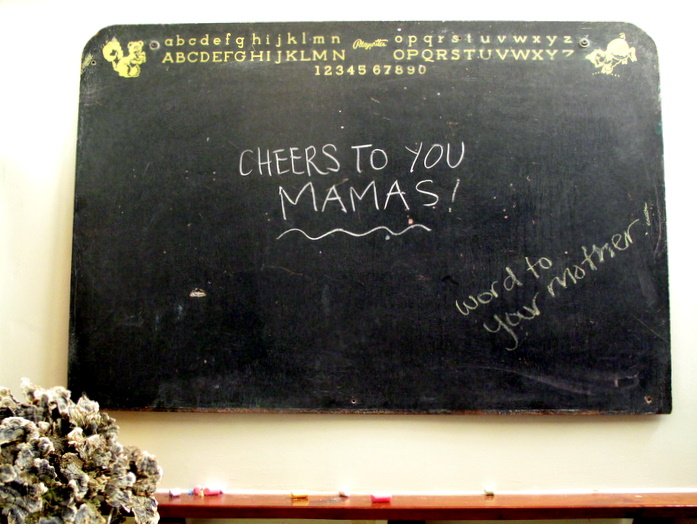 abcdefghijklmn Playmates opqrstuvwxyz
ABCDEFGHIJKLMN OPQRSTUVWXYZ
1234567890
CHEERS TO YOU
MAMAS!
word to
your mother!!